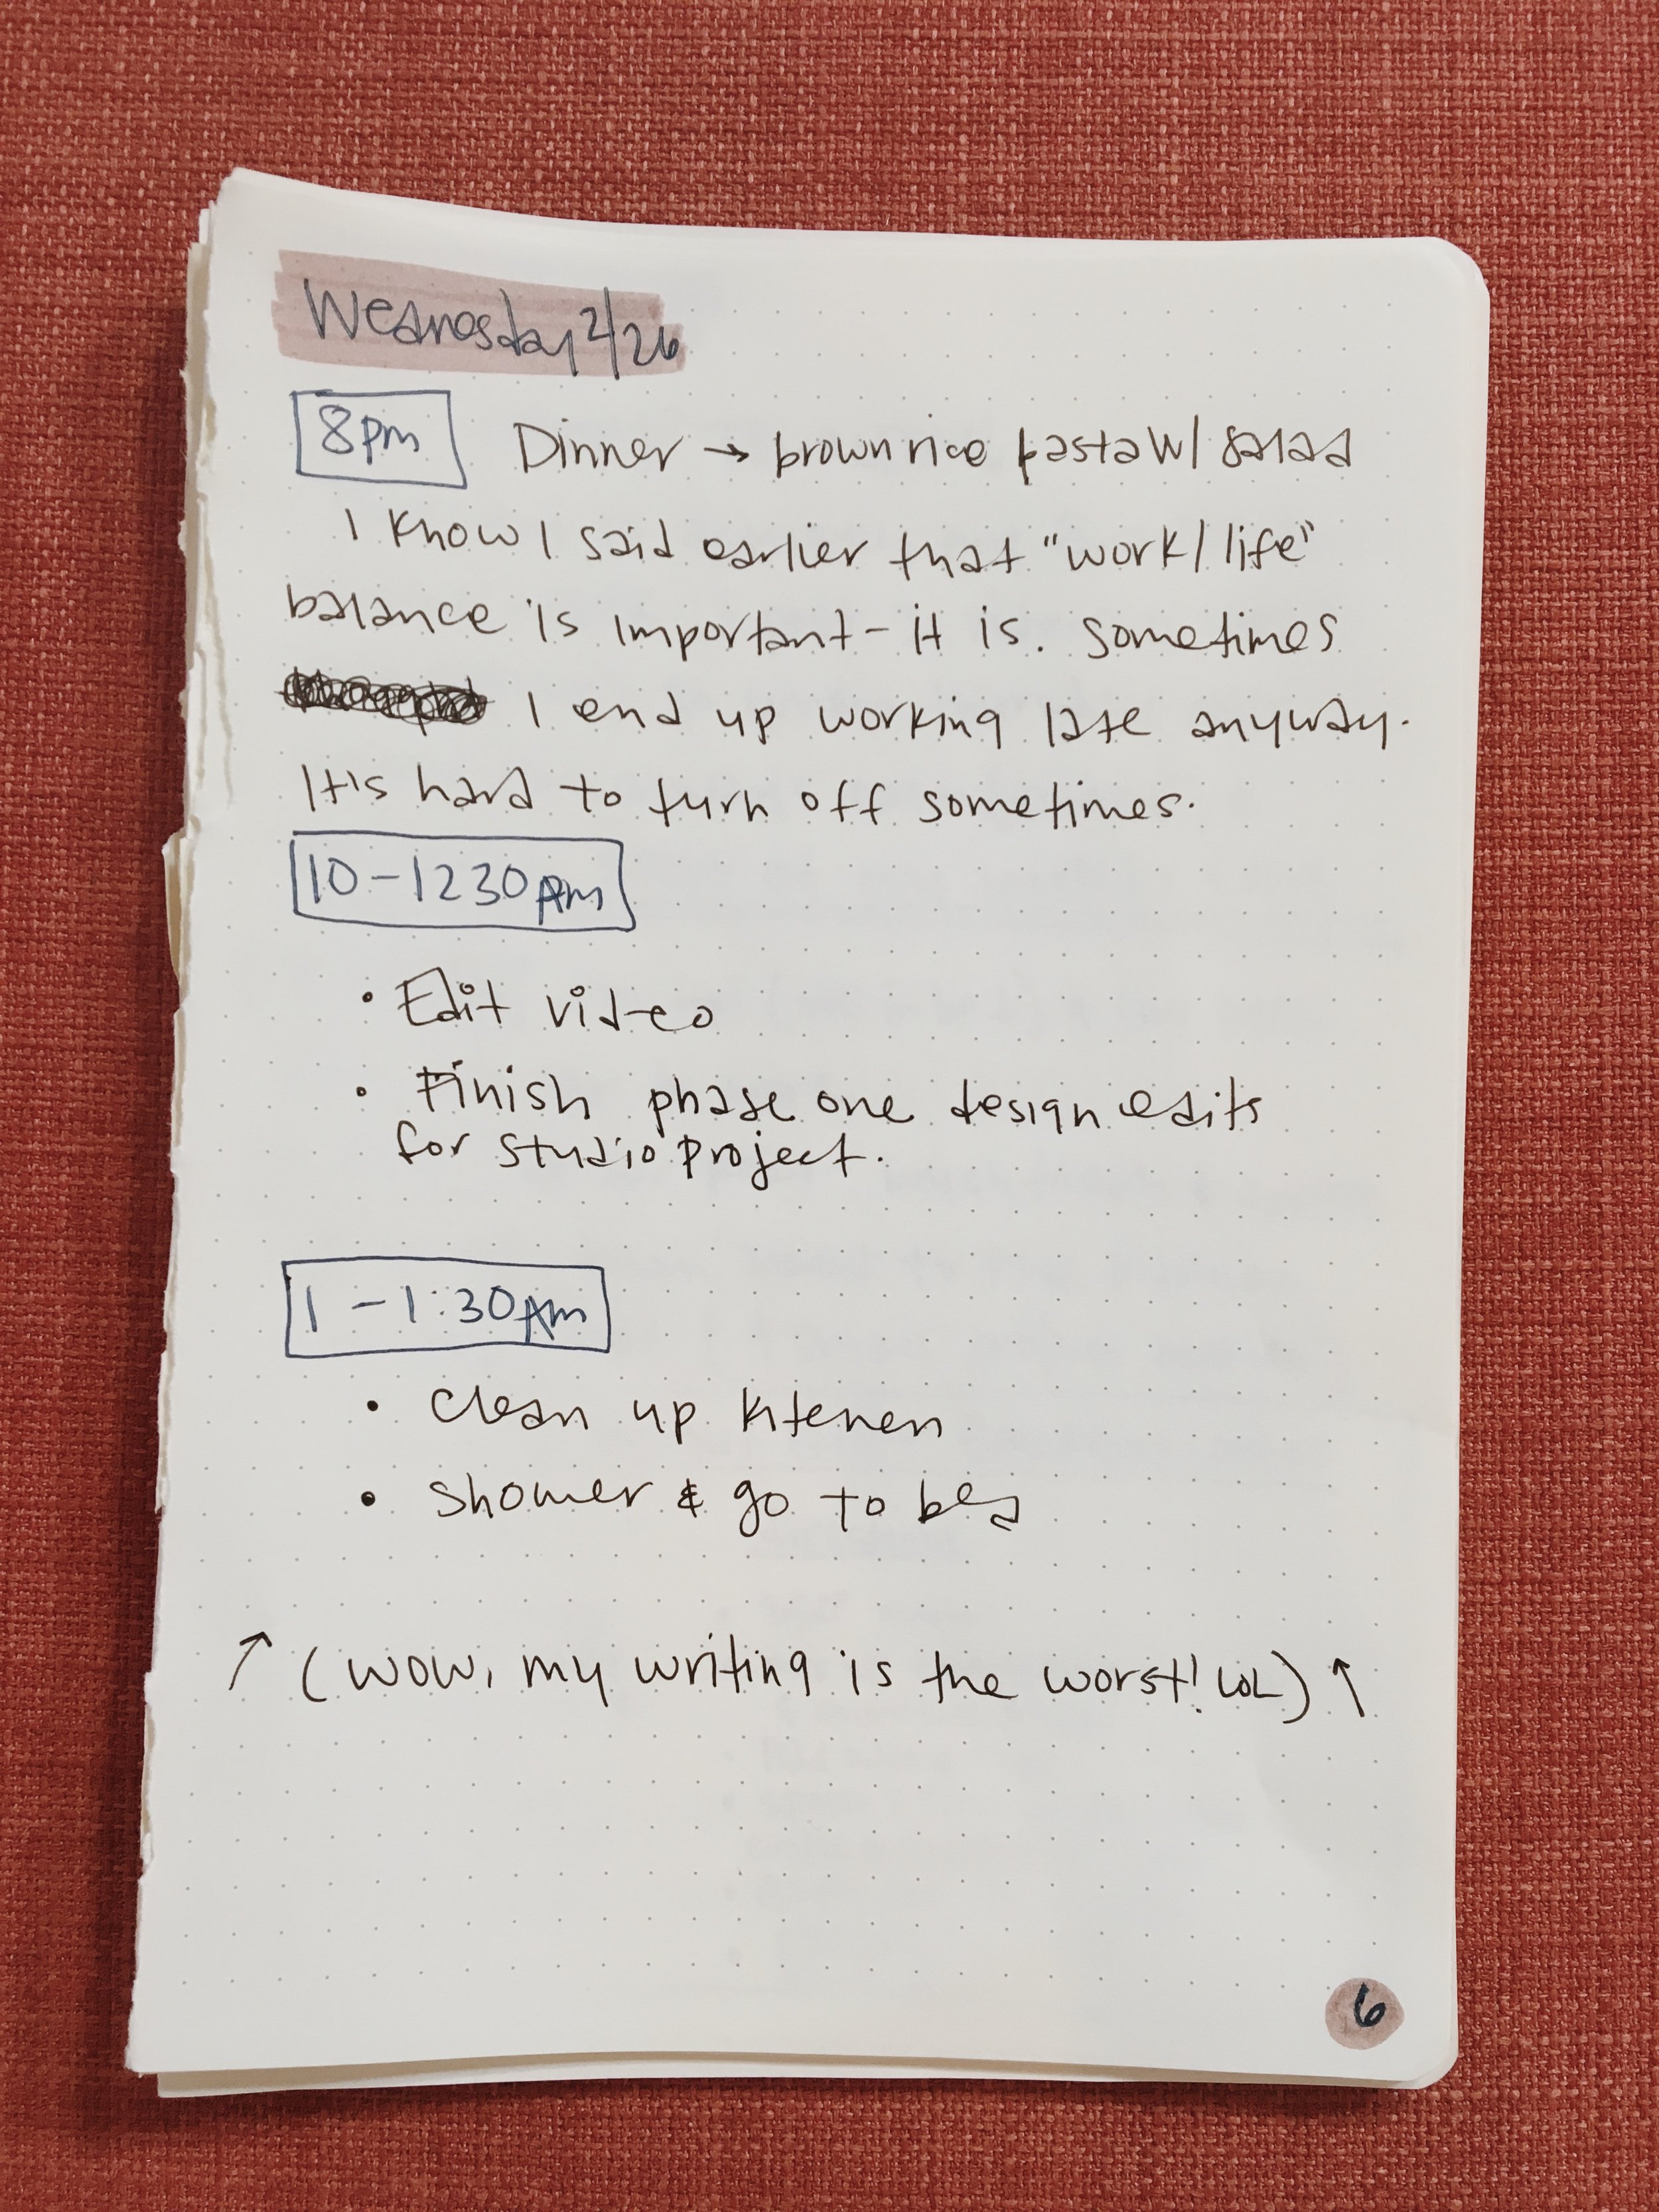 Wednesday 2/26
8pm Dinner → brown rice pasta w/ salad
I know I said earlier that "work/life"
balance is important - it is. Sometimes
I end up working late anyway.
It's hard to turn off sometimes.
10-1230am
• Edit video
• Finish phase one design edits
for studio project.
1-1:30am
• Clean up kitchen
• shower & go to bed
↑ (wow, my writing is the worst! LOL) ↑
6